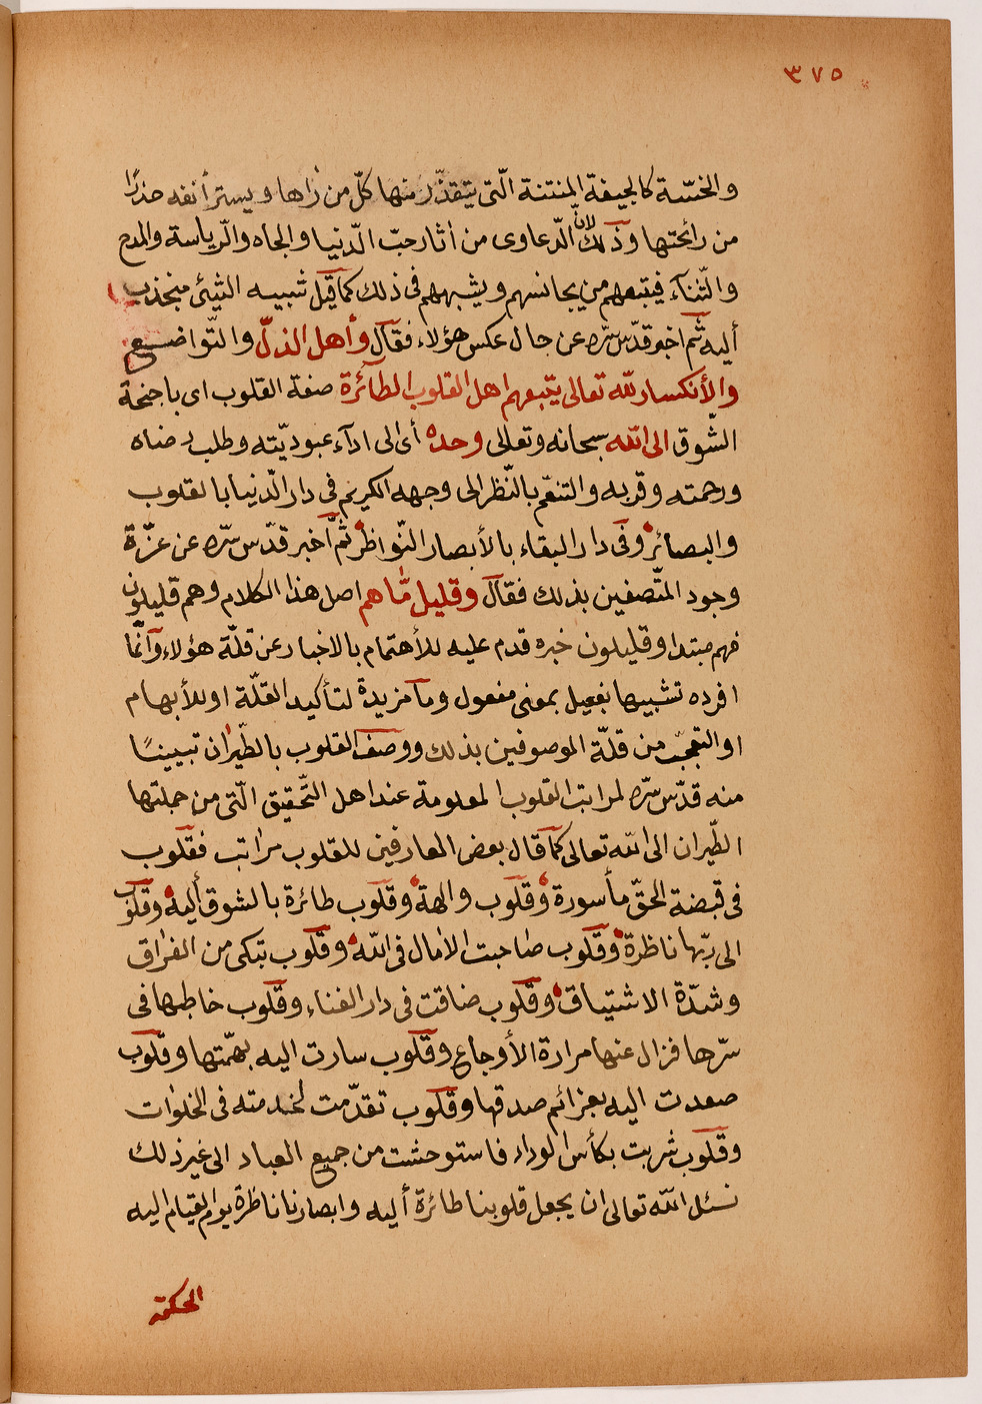 ٣٧٥
والخسّة كالجيفة المنتنة الّتى يتقذّر منها كلّ من رٰاها ويستر أنفه حذرًا
من رائحتها وذلك لانّ الدّعاوى من أثار حبّ الدّنيا والجاه والرّياسة والمدح
والثّنآء فيتبعهم من يجانسهم ويشبههم فى ذلك كما قيل شبيه الشيئ منجذب
أليه ثمّ اخبر قدّس سرّه عن حال عكس هؤلاء فقال وأهل الذلّ والتّواضع
والأنكسار للّه تعالى يتبعهم اهل القلوب الطآئرة صفة القلوب اى باجنحة
الشّوق الى اللّه سبحانه وتعالى وحده أى الى ادآء عبوديّته وطلب رضاه
ورحمته وقربه والتنعّم بالنّظر الى وجهه الكريم فى دار الدّنيا بالقلوب
والبصائر وفى دار البقاء بالأبصار النّواظر ثمّ أخبر قدّس سرّه عن عزّة
وجود المتّصفين بذلك فقال وقليل مّا هم اصل هذا الكلام وهم قليلون
فهم مبتدا وقليلون خبره قدم عليه للأهتمام بالاخبار عن قلّة هؤلاء وأنّما
افرده تشبيها بفعيل بمعنى مفعول وما مزيدة لتأكيد القلّة او للأبهام
او التعجّب من قلّة الموصوفين بذلك ووصف القلوب بالطّيران تبيينًا
منه قدّس سرّه لمراتب القلوب المعلومة عند اهل التّحقيق الّتى من جملتها
الطّيران الى اللّه تعالى كما قال بعض العارفين للقلوب مراتب فقلوب
فى قبضة الحقّ مأسورة وقلوب والهة وقلوب طائرة بالشوق أليه وقلوب
الى ربّها ناظرة وقلوب صٰاحبت الاٰمال فى اللّه وقلوب تبكى من الفراق
وشدّة الاشتياق وقلوب ضاقت فى دار الفناء وقلوب خاطبها فى
سرّها فزال عنها مرارة الأوجاع وقلوب سارت اليه بهمّتها وقلوب
صعدت اليه بعزائم صدقها وقلوب تقدّمت لخدمته فى الخلوات
وقلوب شربت بكأس الوداد فاستوحشت من جميع العباد الى غير ذلك
نسئل اللّه تعالى ان يجعل قلوبنا طائرة أليه وابصارنا ناظرة يوم القيام اليه
الحكمة